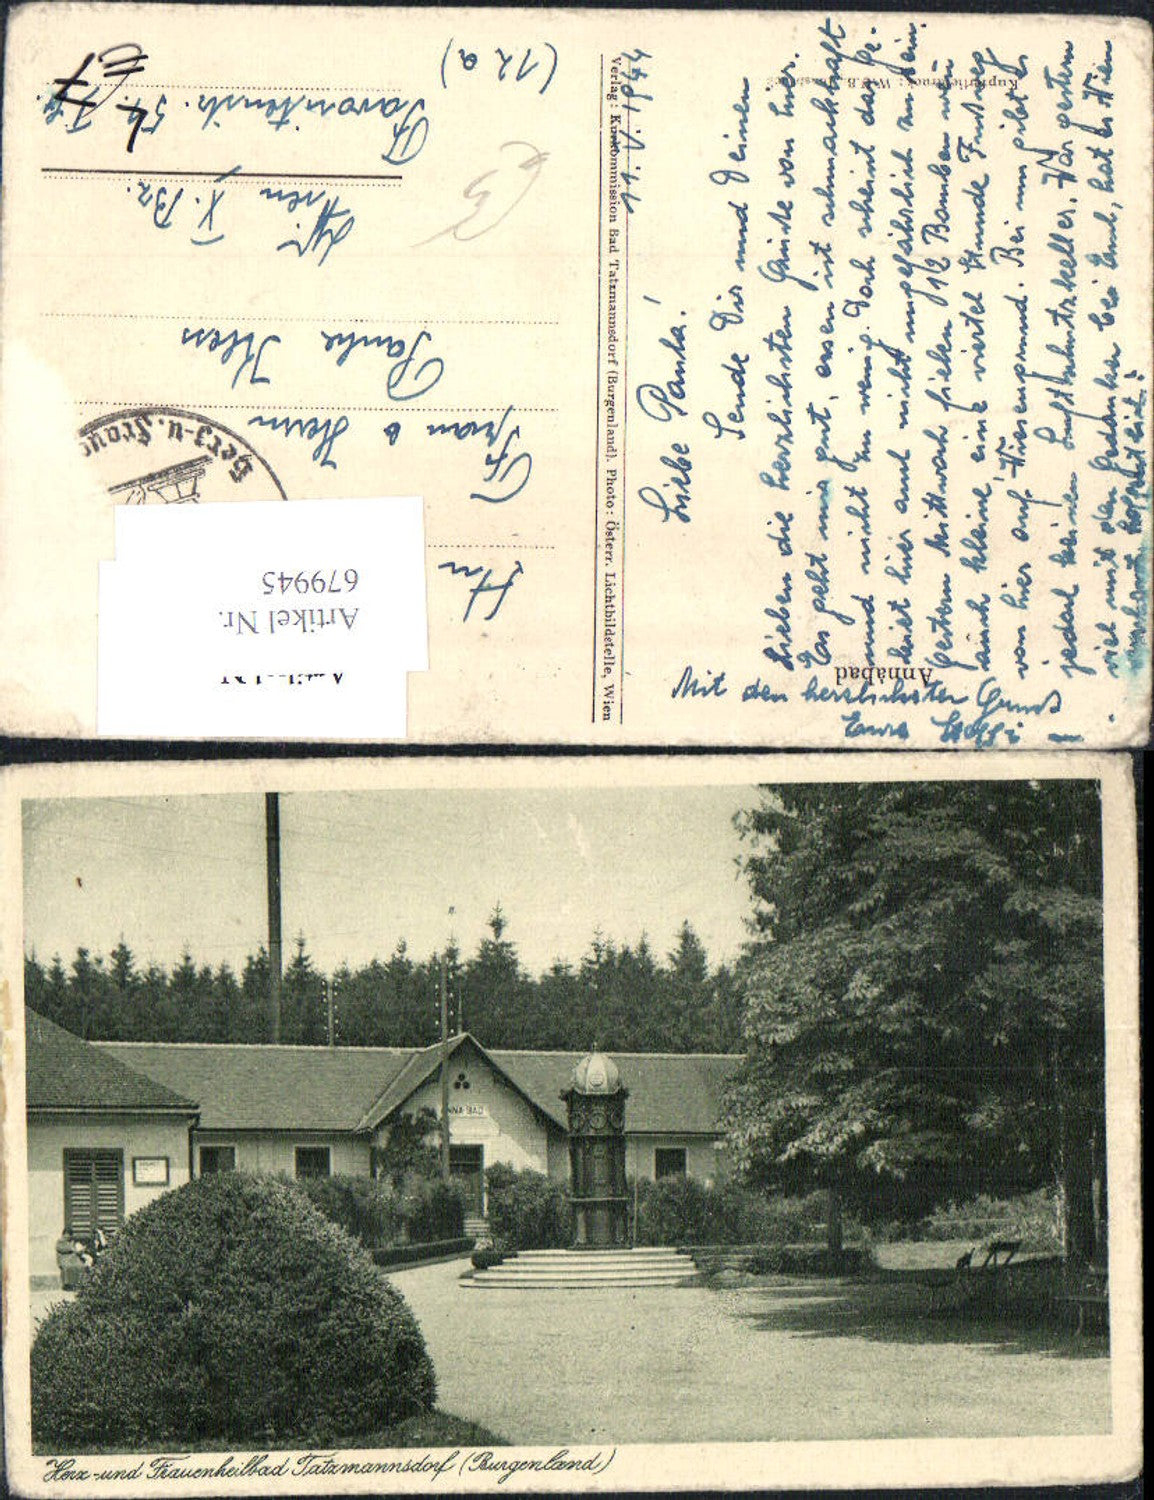 Annabad
Kupfertiefdruck:
Verlag: Kurkommission Bad Tatzmannsdorf (Burgenland). Photo: Österr. Lichtbildstelle, Wien
11. V. 1944
Liebe Paula!
Sende Dir und Deinen
Lieben die herzlichsten Grüße von hier.
Es geht mir gut, essen ist schmackhaft
und nicht zu wenig. Doch scheint das Ge-
hier auch nicht ungefährlich zu sein.
Gestern Mittwoch fielen 112 Bomben
kleine, eine viertel Stunde Fußweg
von hier auf Wiesengrund. Bei uns gibt es
jedoch keinen Luftschutzkeller. War gestern
viel mit den Gedanken bei Euch, hat es Wien

Mit den herzlichsten Gruß
Eure Steffi
An
Frau u Herrn
Paula Hess
Wien X. Bz.
Favoritenstr. 54.
(12a)
€ 7
€ 3
Herz-u. Frau
Artikel Nr.
679945
NNA-BAD
Herz- und Frauenheilbad Tatzmannsdorf (Burgenland)